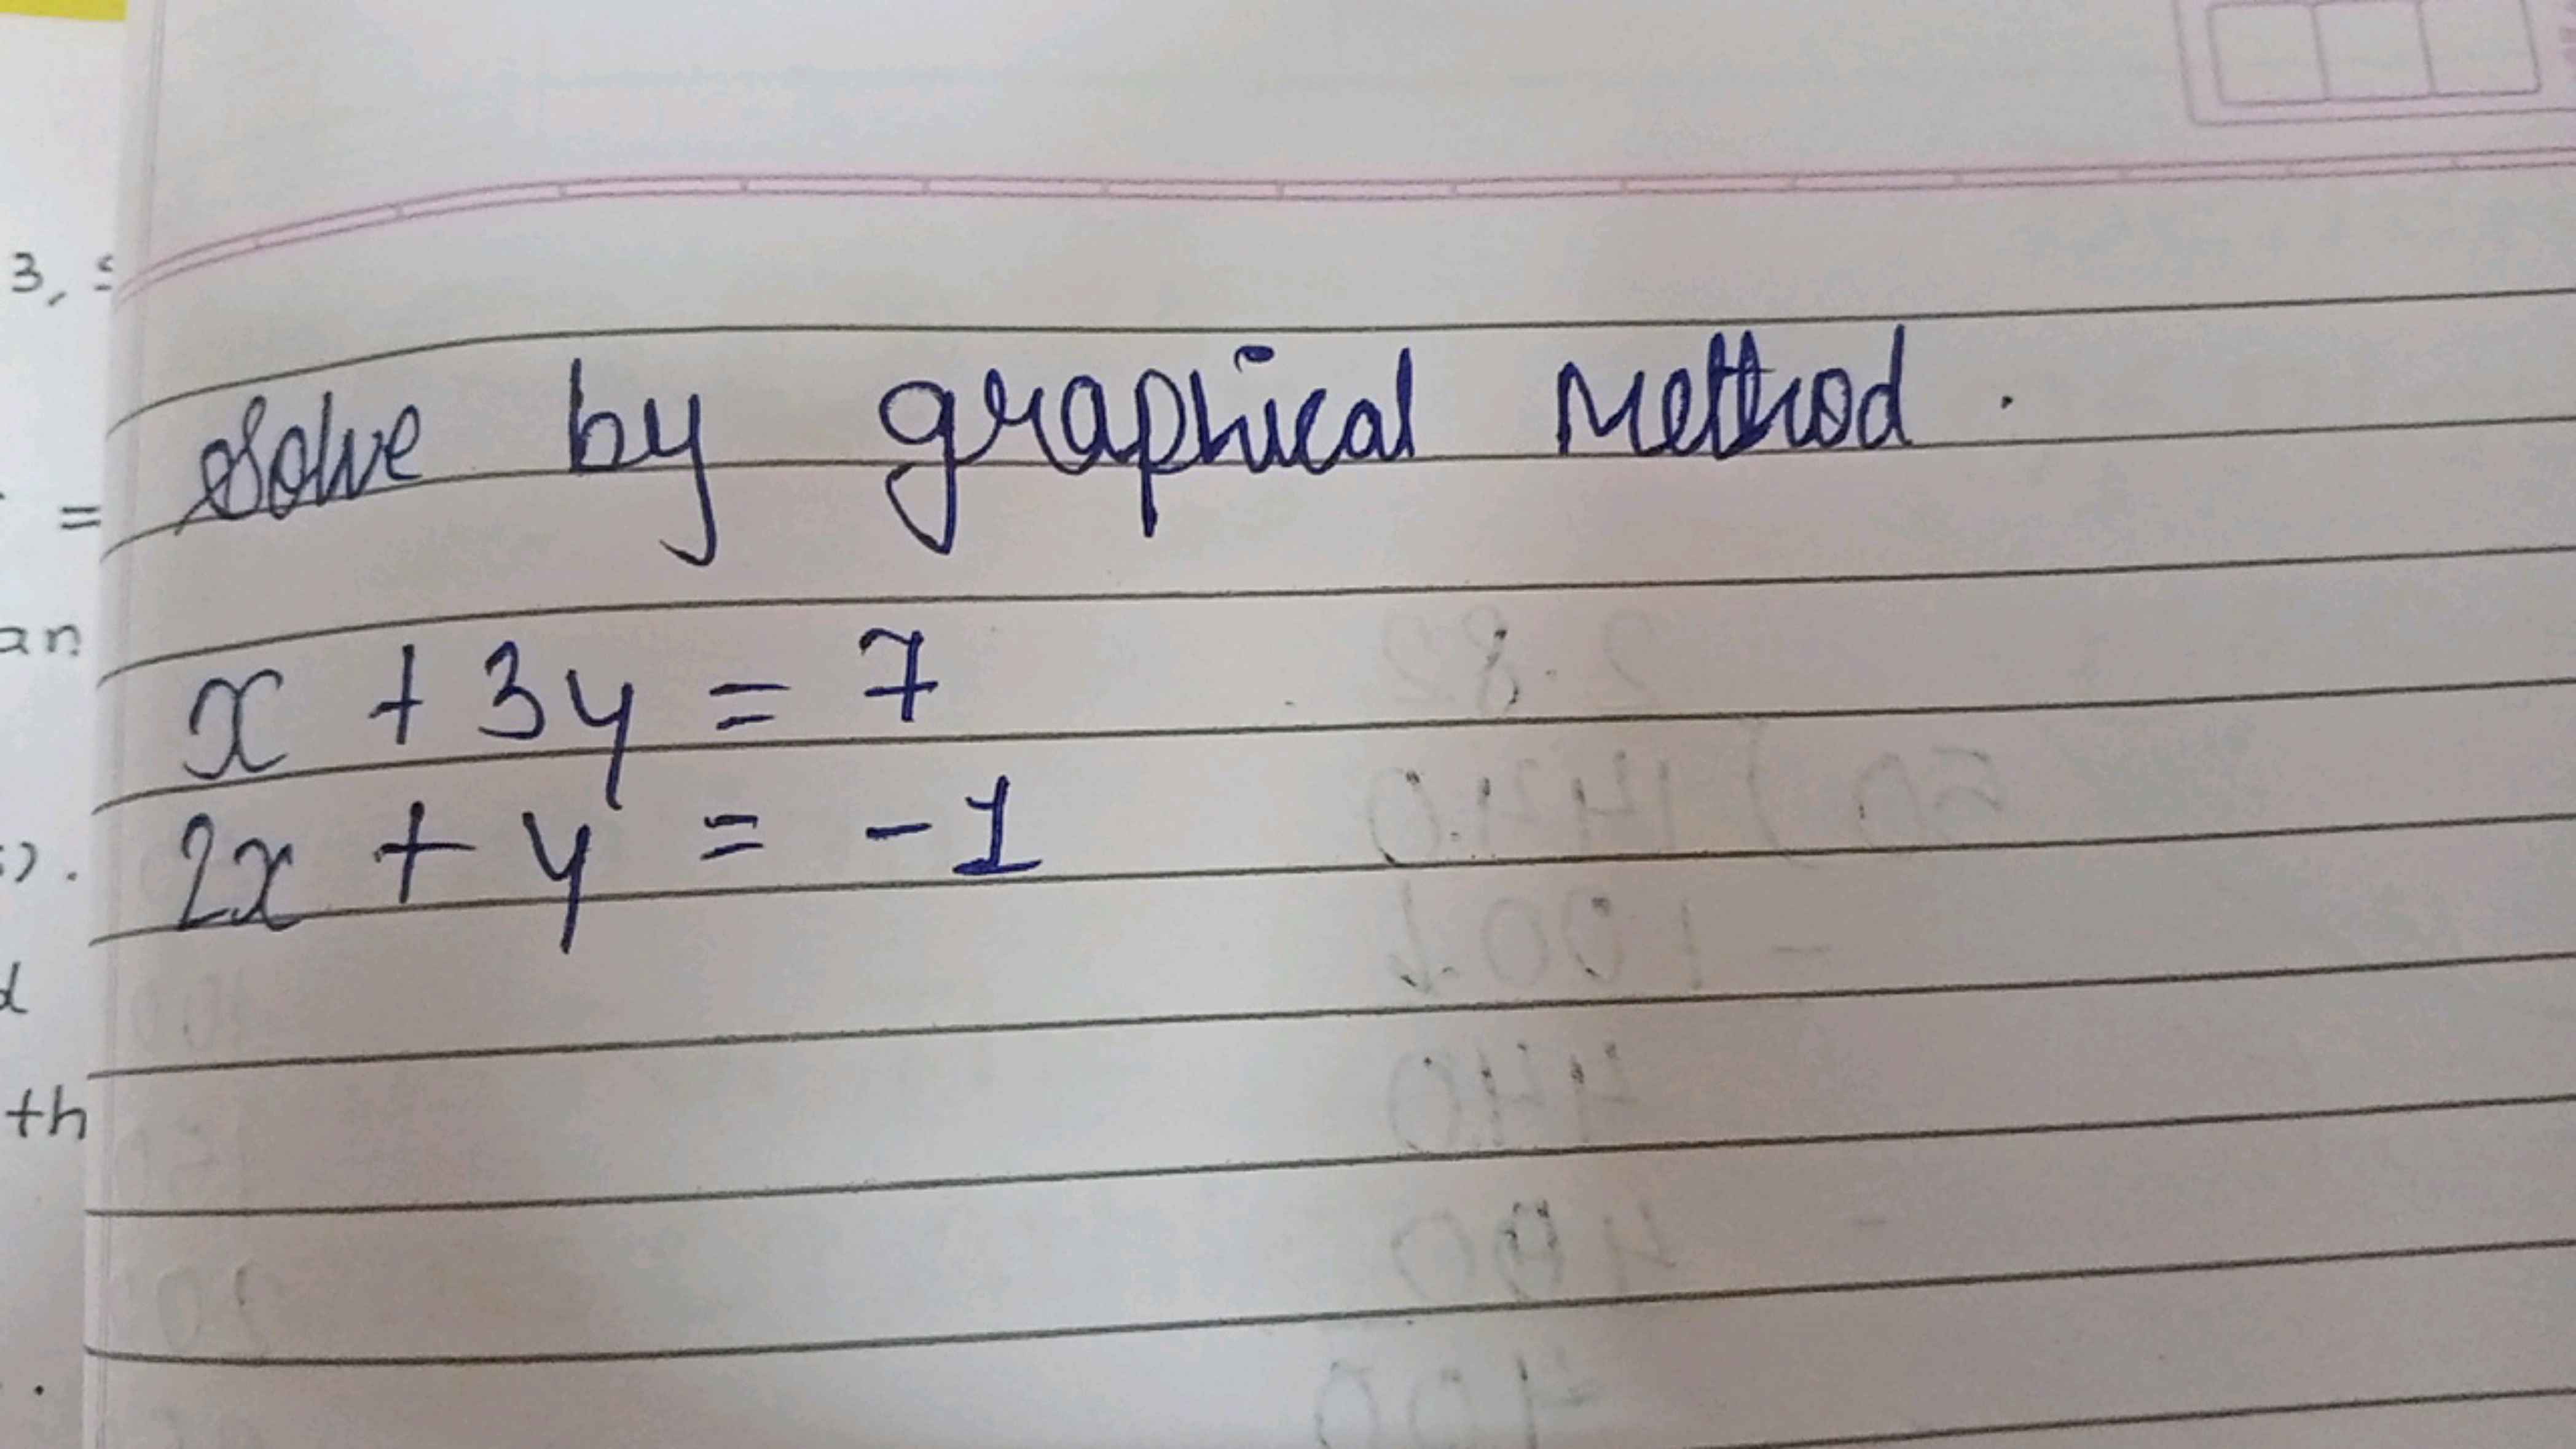 3,
solve by graphical Method.
=
an
x + 3y = 7
2x + y = -1
d
th